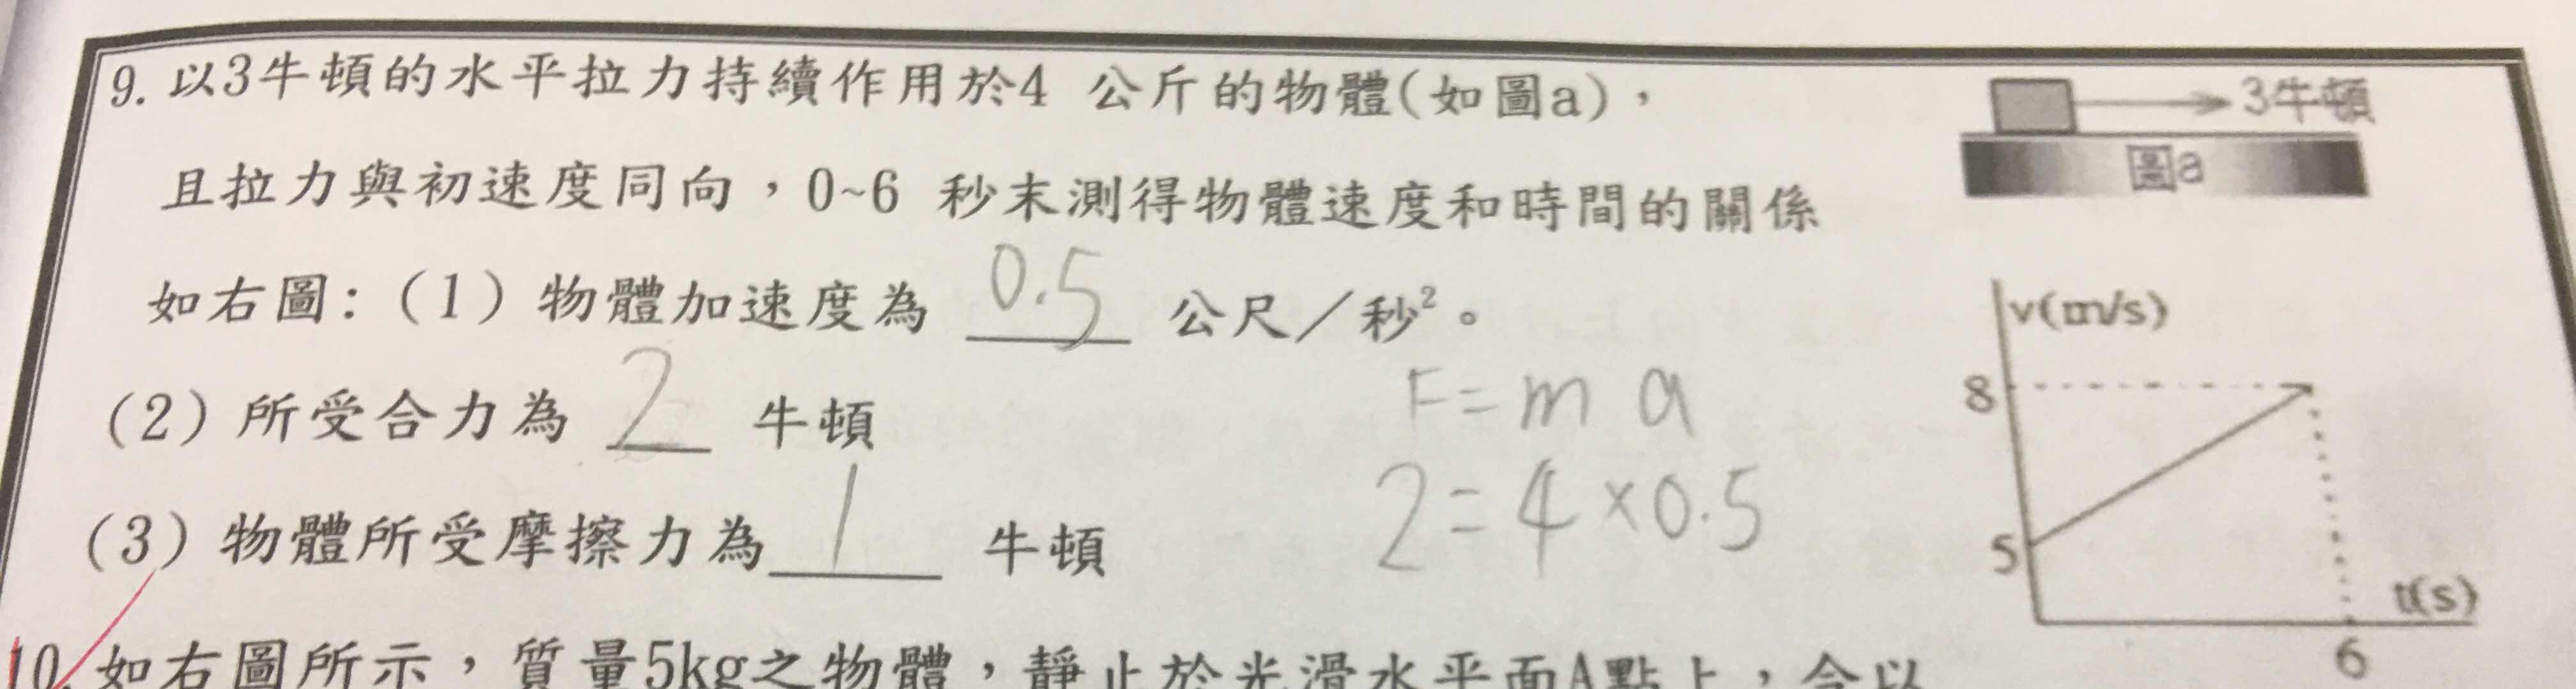 9. 以3牛頓的水平拉力持續作用於4 公斤的物體(如圖a)，
且拉力與初速度同向，0~6 秒末測得物體速度和時間的關係
如右圖：(1) 物體加速度為 0.5 公尺／秒²。
(2) 所受合力為 2 牛頓
(3) 物體所受摩擦力為 1 牛頓
F=ma
2=4×0.5
3牛頓
圖a
v(m/s)
8
5
t(s)
6
10. 如右圖所示，質量5kg之物體，靜止於光滑水平面A點上，今以